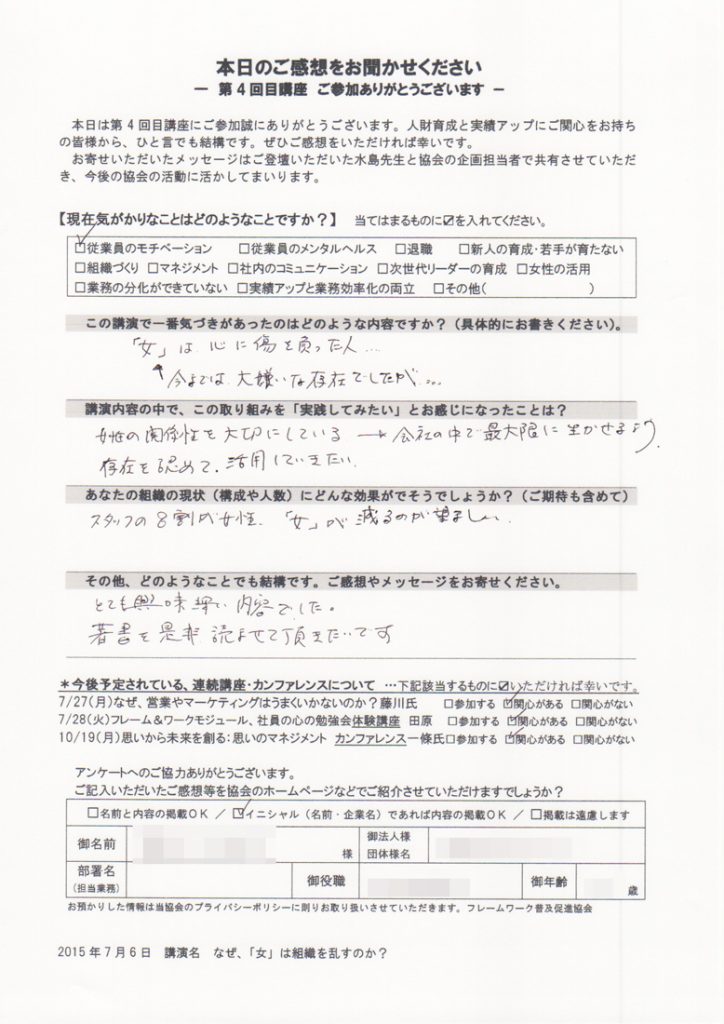 本日のご感想をお聞かせください
－ 第４回目講座 ご参加ありがとうございます －
本日は第４回目講座にご参加誠にありがとうございます。人財育成と実績アップにご関心をお持ち
の皆様から、ひと言でも結構です。ぜひご感想をいただければ幸いです。
お寄せいただいたメッセージはご登壇いただいた水島先生と協会の企画担当者で共有させていただ
き、今後の協会の活動に活かしてまいります。
【現在気がかりなことはどのようなことですか？】 当てはまるものに☑を入れてください。
☑従業員のモチベーション □従業員のメンタルヘルス □退職 □新人の育成・若手が育たない
□組織づくり □マネジメント □社内のコミュニケーション □次世代リーダーの育成 □女性の活用
□業務の分化ができていない □実績アップと業務効率化の両立 □その他( )
この講演で一番気づきがあったのはどのような内容ですか？（具体的にお書きください）。
「女」は、心に傷を負った人…
↑今までは、大嫌いな存在でしたが…
講演内容の中で、この取り組みを「実践してみたい」とお感じになったことは？
女性の関係性を大切にしている → 会社の中で最大限に生かせるよう
存在を認めて、活用していきたい
あなたの組織の現状（構成や人数）にどんな効果がでそうでしょうか？（ご期待も含めて）
スタッフの８割が女性、「女」が減るのが望ましい。
その他、どのようなことでも結構です。ご感想やメッセージをお寄せください。
とても興味深い内容でした。
著書を是非読ませて頂きたいです
＊今後予定されている、連続講座・カンファレンスについて …下記該当するものに☑いただければ幸いです。
7/27(月)なぜ、営業やマーケティングはうまくいかないのか？藤川氏 □参加する ☑関心がある □関心がない
7/28(火)フレーム＆ワークモジュール、社員の心の勉強会体験講座 田原 □参加する ☑関心がある □関心がない
10/19(月)思いから未来を創る：思いのマネジメント カンファレンス一條氏□参加する ☑関心がある □関心がない
アンケートへのご協力ありがとうございます。
ご記入いただいたご感想等を協会のホームページなどでご紹介させていただけますでしょうか？
□名前と内容の掲載ＯＫ ／ ☑イニシャル（名前・企業名）であれば内容の掲載ＯＫ ／ □掲載は遠慮します
御名前 様 御法人様 団体様名
部署名 (担当業務) 御役職 御年齢 歳
お預かりした情報は当協会のプライバシーポリシーに則りお取り扱いさせていただきます。フレームワーク普及促進協会
2015年7月6日 講演名 なぜ、「女」は組織を乱すのか？